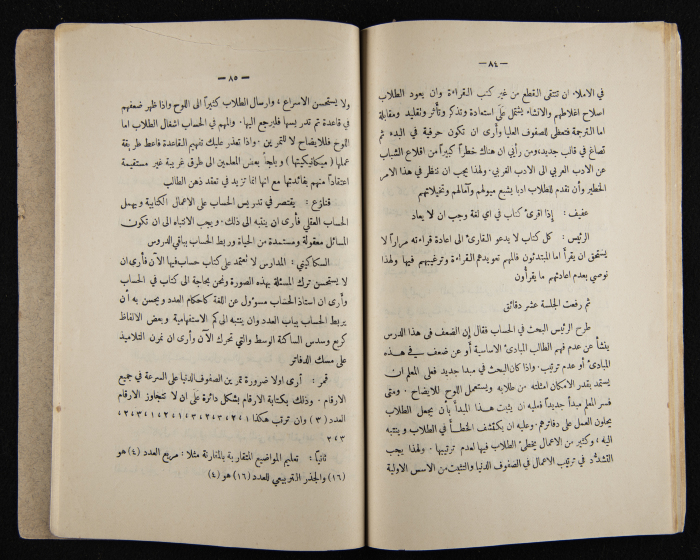 — ٨٤ —
في الاملاء ان تنتقى القطع من غير كتب القراءة وان يعود الطلاب
اصلاح اغلاطهم والانشاء يشتمل على استعادة وتذكر وتأثر وتقليد ومقابلة
اما الترجمة فتعطى للصفوف العليا وأرى ان تكون حرفية في البدء ثم
تصاغ في قالب جديد، ومن رأيي ان هناك خطراً كبيراً من اقلاع الشباب
عن الادب العربي الى الادب الغربي. ولهذا يجب ان ننظر في هذا الامر
الخطير وأن نقدم للطلاب ادبا يشبع ميولهم وآمالهم وتخيلاتهم
عفيف : إذا اقرئ كتاب في اي لغة وجب ان لا يعاد
الرئيس : كل كتاب لا يدعو القارئ الى اعادة قراءته مراراً لا
يستحق ان يقرأ اما المبتدئون فالمهم تعويدهم القراءة وترغيبهم فيها ولهذا
نوصي بعدم اعادتهم ما يقرأون
ثم رفعت الجلسة عشر دقائق
طرح الرئيس البحث في الحساب فقال إن الضعف في هذا الدرس
ينشأ عن عدم فهم الطالب المبادئ الاساسية أو عن ضعف في هذه
المبادئ أو عدم ترتيب. واذا كان البحث في مبدأ جديد فعلى المعلم ان
يستمد بقدر الامكان امثلته من طلابه ويستعمل اللوح للايضاح. ومتى
فسر المعلم مبدأ جديداً فعليه ان يثبت هذا المبدأ بأن يجعل الطلاب
يحاولون العمل على دفاترهم. وعليه ان يكتشف الخطأ في الطلاب وينتبه
اليه، وكثير من الاعمال يخطئ الطلاب فيها لعدم ترتيبها. ولهذا يجب
التشدد في ترتيب الاعمال في الصفوف الدنيا والتثبت من الاسس الاولية
— ٨٥ —
ولا يستحسن الاسراع، وارسال الطلاب كثيراً الى اللوح واذا ظهر ضعفهم
في قاعدة تم تدريسها فليرجع اليها. والمهم في الحساب اشغال الطلاب اما
اللوح فللايضاح لا للتمرين. واذا تعذر عليك تفهيم القاعدة فاعط طريقة
عملها (ميكانيكيتها) ويلجأ بعض المعلمين الى طرق غريبة غير مستقيمة
اعتقاداً منهم بفائدتها مع انها انما تزيد في تعقد ذهن الطالب
قنازع : يقتصر في تدريس الحساب على الاعمال الكتابية ويهمل
الحساب العقلي فأرى ان ينتبه الى ذلك. ويجب الانتباه الى ان تكون
المسائل معقولة ومستمدة من الحياة وربط الحساب بباقي الدروس
السكاكيني : المدارس لا تعتمد على كتاب حساب فيها الآن فأرى ان
لا يستحسن ترك المسئلة بهذه الصورة ونحن بحاجة الى كتاب في الحساب
وأرى ان استاذ الحساب مسؤول عن اللغة كاحكام العدد ويحسن به أن
يربط الحساب بباب العدد وان ينتبه الى كم الاستفهامية وبعض الالفاظ
كربع وسدس الساكنة الوسط والتي تحرك الآن وأرى ان نمرن التلاميذ
على مسك الدفاتر
قمر : أرى اولا ضرورة تمرين الصفوف الدنيا على السرعة في جميع
الارقام. وذلك بكتابة الارقام بشكل دائرة على ان لا تتجاوز الارقام
ثانياً : تعليم المواضيع المتقاربة بالمقارنة مثلا : مربع العدد (٤) هو
(١٦) والجذر التربيعي للعدد (١٦) هو (٤)